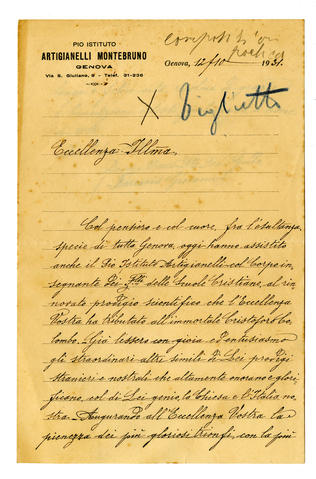 PIO ISTITUTO
ARTIGIANELLI MONTEBRUNO
GENOVA
Via S. Giuliano, 9 - Telef. 31-236
Genova, 12/10 1931.
X Biglietto
Eccellenza Ill͞ma,
Col pensiero e col cuore, fra l'esultanza,
specie di tutta Genova, oggi hanno assistito
anche il Pio Istituto Artigianelli col Corpo in,
segnante dei F.lli delle Scuole Cristiane, al rin,
novato prodigio scientifico che l'Eccellenza
Vostra ha tributato all'immortale Cristoforo Co,
lombo. Già lessero con gioia ed entusiasmo
gli straordinari altri simili di Lei prodigi
stranieri e nostrali che altamente onorano e glori,
ficano, col di Lei genio, la Chiesa e l'Italia no,
stra. Augurando all'Eccellenza Vostra la
pienezza dei più gloriosi trionfi, con la più